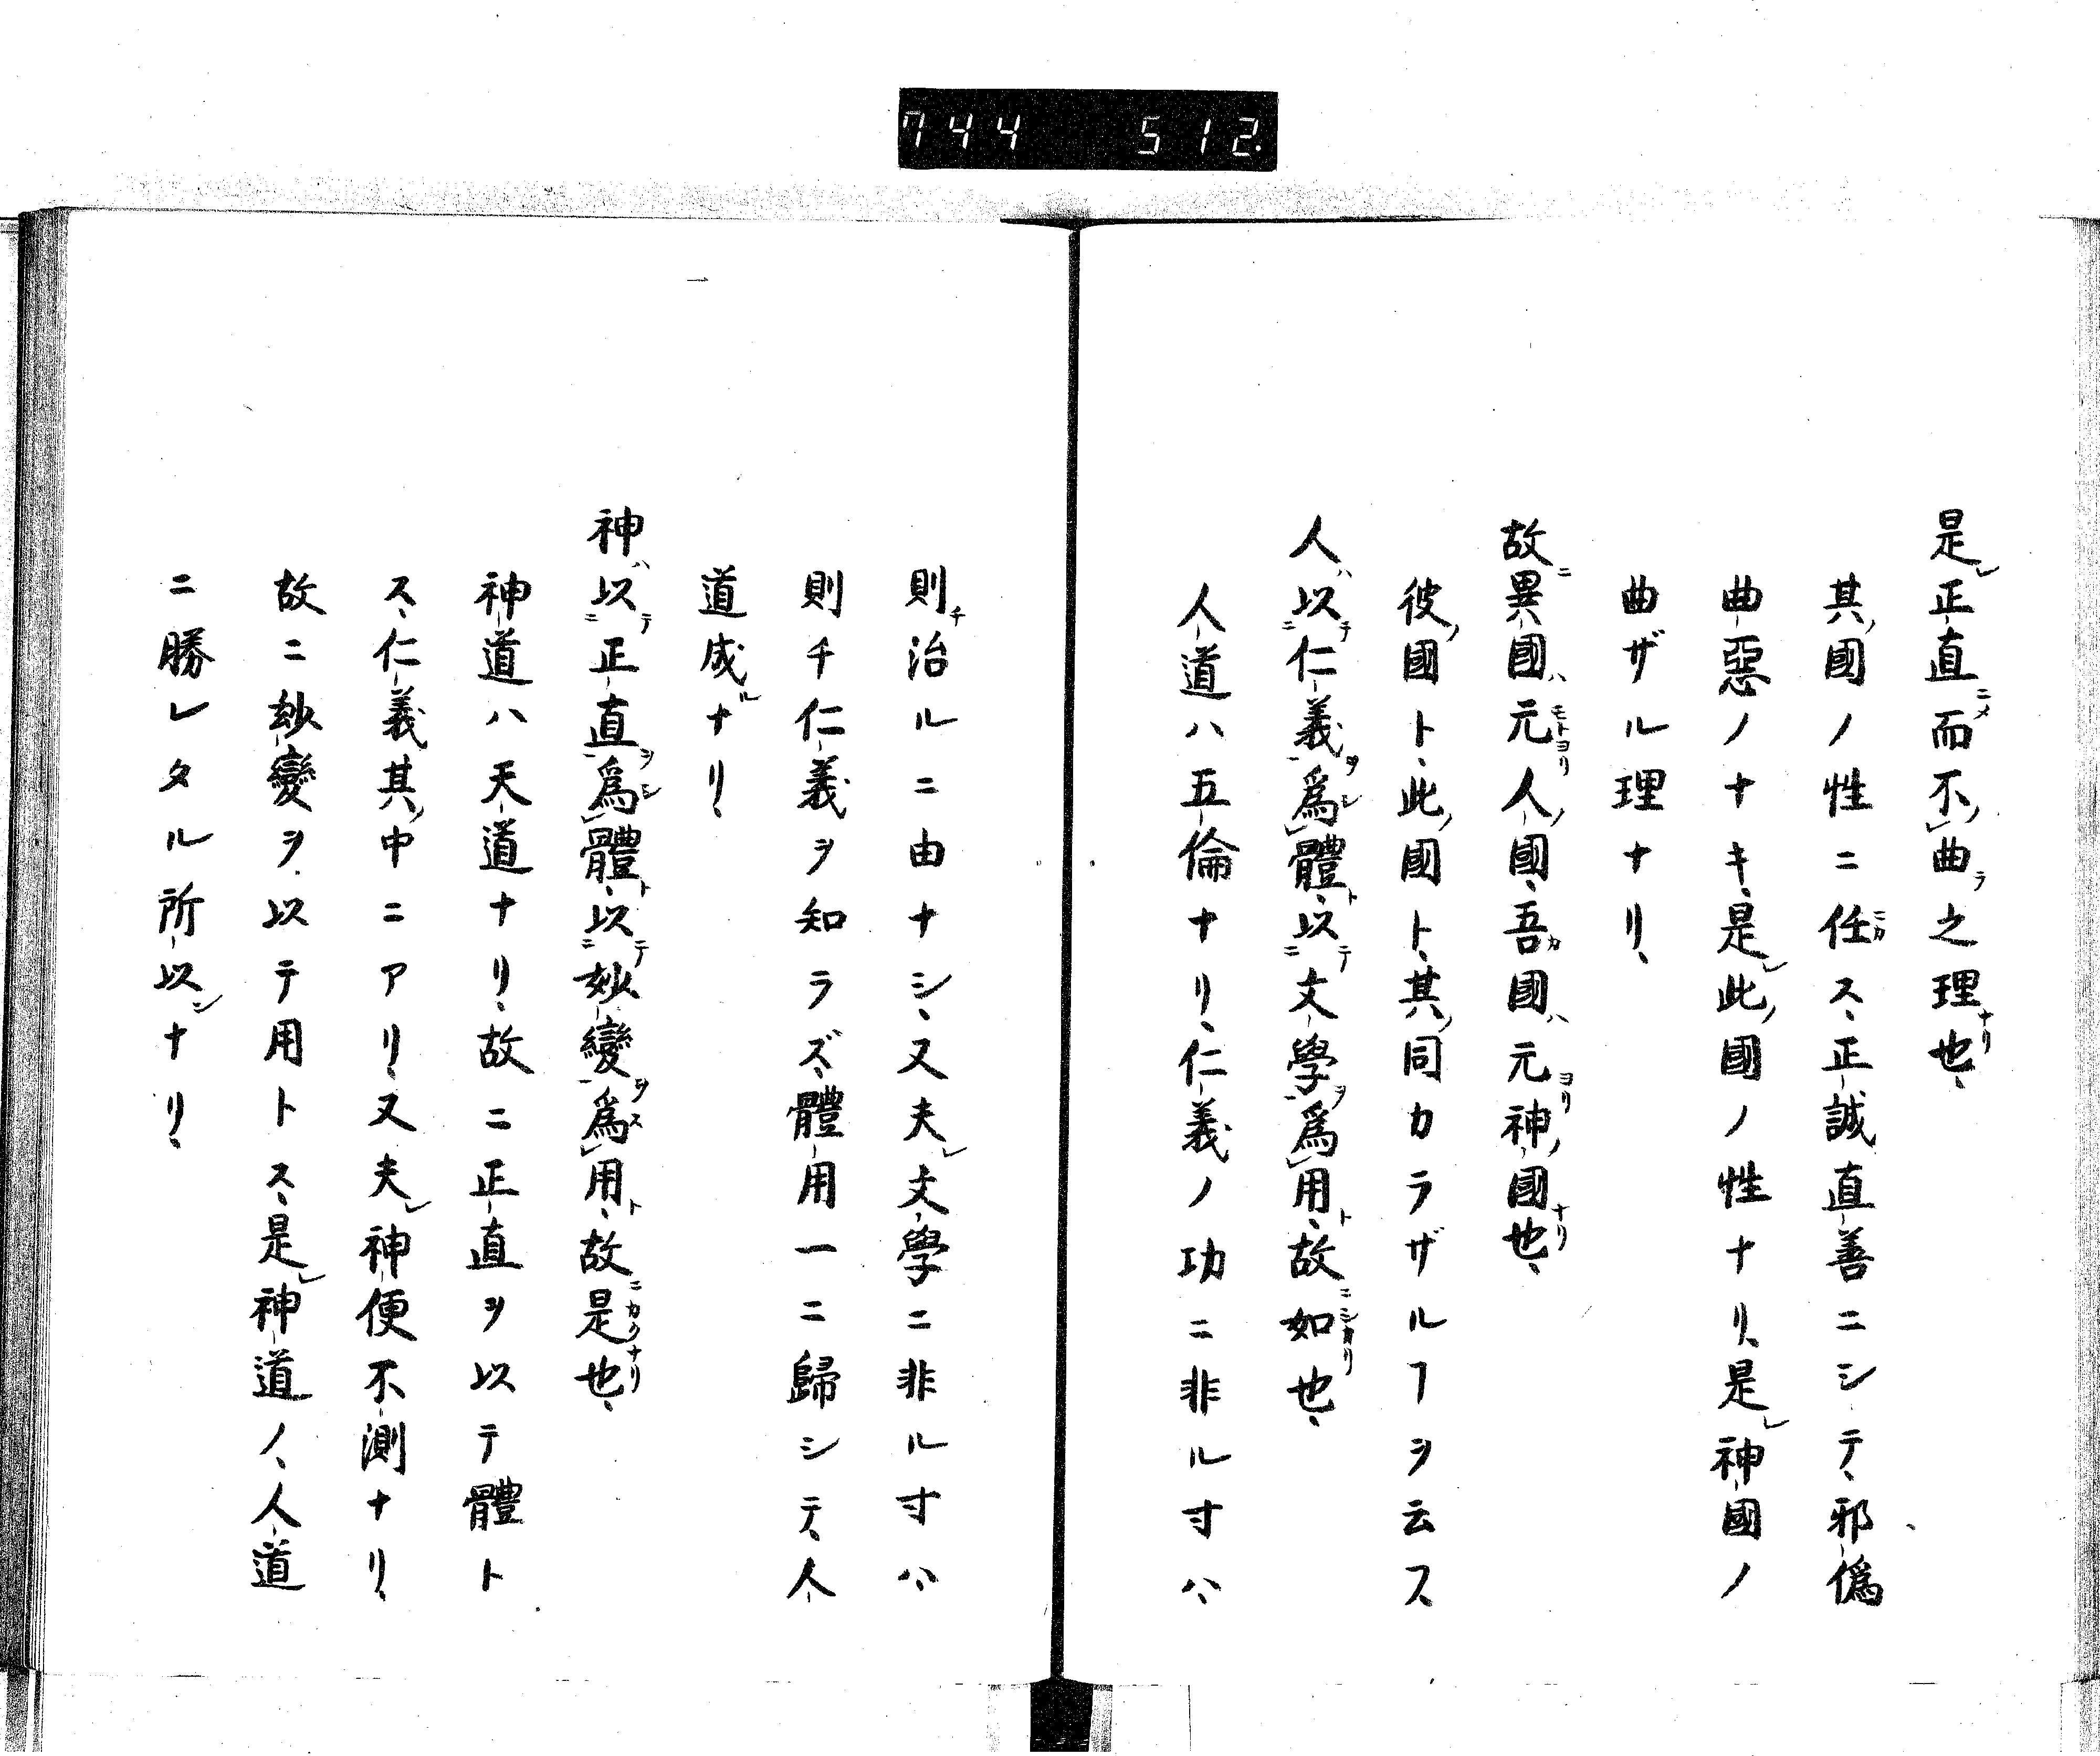 744 512.
是レ正直ニメ而不曲ラ之理ナリ也、
其ノ國ノ性ニ任ニカス、正誠直善ニシテ、邪僞
曲惡ノナキ、是レ此ノ國ノ性ナリ、是レ神國ノ
曲ザル理ナリ、
故ニ異國ハ元モトヨリ人ノ國、吾カ國ハ元ヨリ神ノ國ナリ也、
彼ノ國ト、此ノ國ト、其ノ同カラザルヿヲ云ス
人ハ以テ仁義ヲ爲シ體ト、以テ文學ヲ爲用ト、故ニ如シカリ也、
人道ハ五倫ナリ、仁義ノ功ニ非ル寸ハ、
則チ治ルニ由ナシ、又夫レ文學ニ非ル寸ハ、
則チ仁義ヲ知ラズ、體用一ニ歸シテ、人
道成ルナリ、
神ハ以テ正直ヲ爲シ體ト、以テ妙變ヲ爲ス用ト、故ニ是カクナリ也、
神道ハ天道ナリ、故ニ正直ヲ以テ體ト
ス、仁義其ノ中ニアリ、又夫レ神便不測ナリ、
故ニ玅變ヲ以テ用トス、是レ神道ノ、人道
ニ勝レタル所以ンナリ、